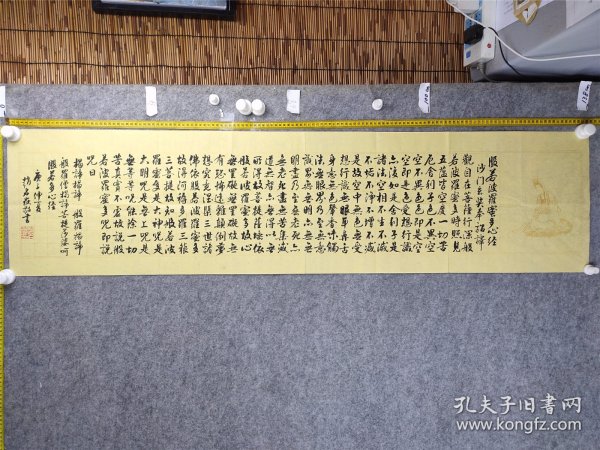 般若波羅蜜多心经
沙门玄奘奉 詔譯
觀自在菩薩行深般
若波羅蜜多時照見
五蕴皆空度一切苦
厄舍利子色不異空
空不異色色即是空
空即是色受想行識
亦復如是舍利子是
諸法空相不生不滅
不垢不淨不增不减
是故空中無色無受
想行識無眼耳鼻舌
身意無色聲香味觸
法無眼界乃至無意
識界無無明亦無無
明盡乃至無老死亦
無老死盡無苦集滅
道無智亦無得以無
所得故菩提薩埵依
般若波羅蜜多故心
無罣礙無罣礙故無
有恐怖遠離顛倒夢
想究竟涅槃三世諸
佛依般若波羅蜜多
故得阿耨多羅三藐
三菩提故知般若波
羅蜜多是大神咒是
大明咒是無上咒是
無等等咒能除一切
苦真實不虛故說般
若波羅蜜多咒即説
咒曰
揭諦揭諦 般羅揭諦
般羅僧揭諦菩提薩婆呵
般若多心經
庚子仲夏
孔夫子旧书网
www.kongfz.com